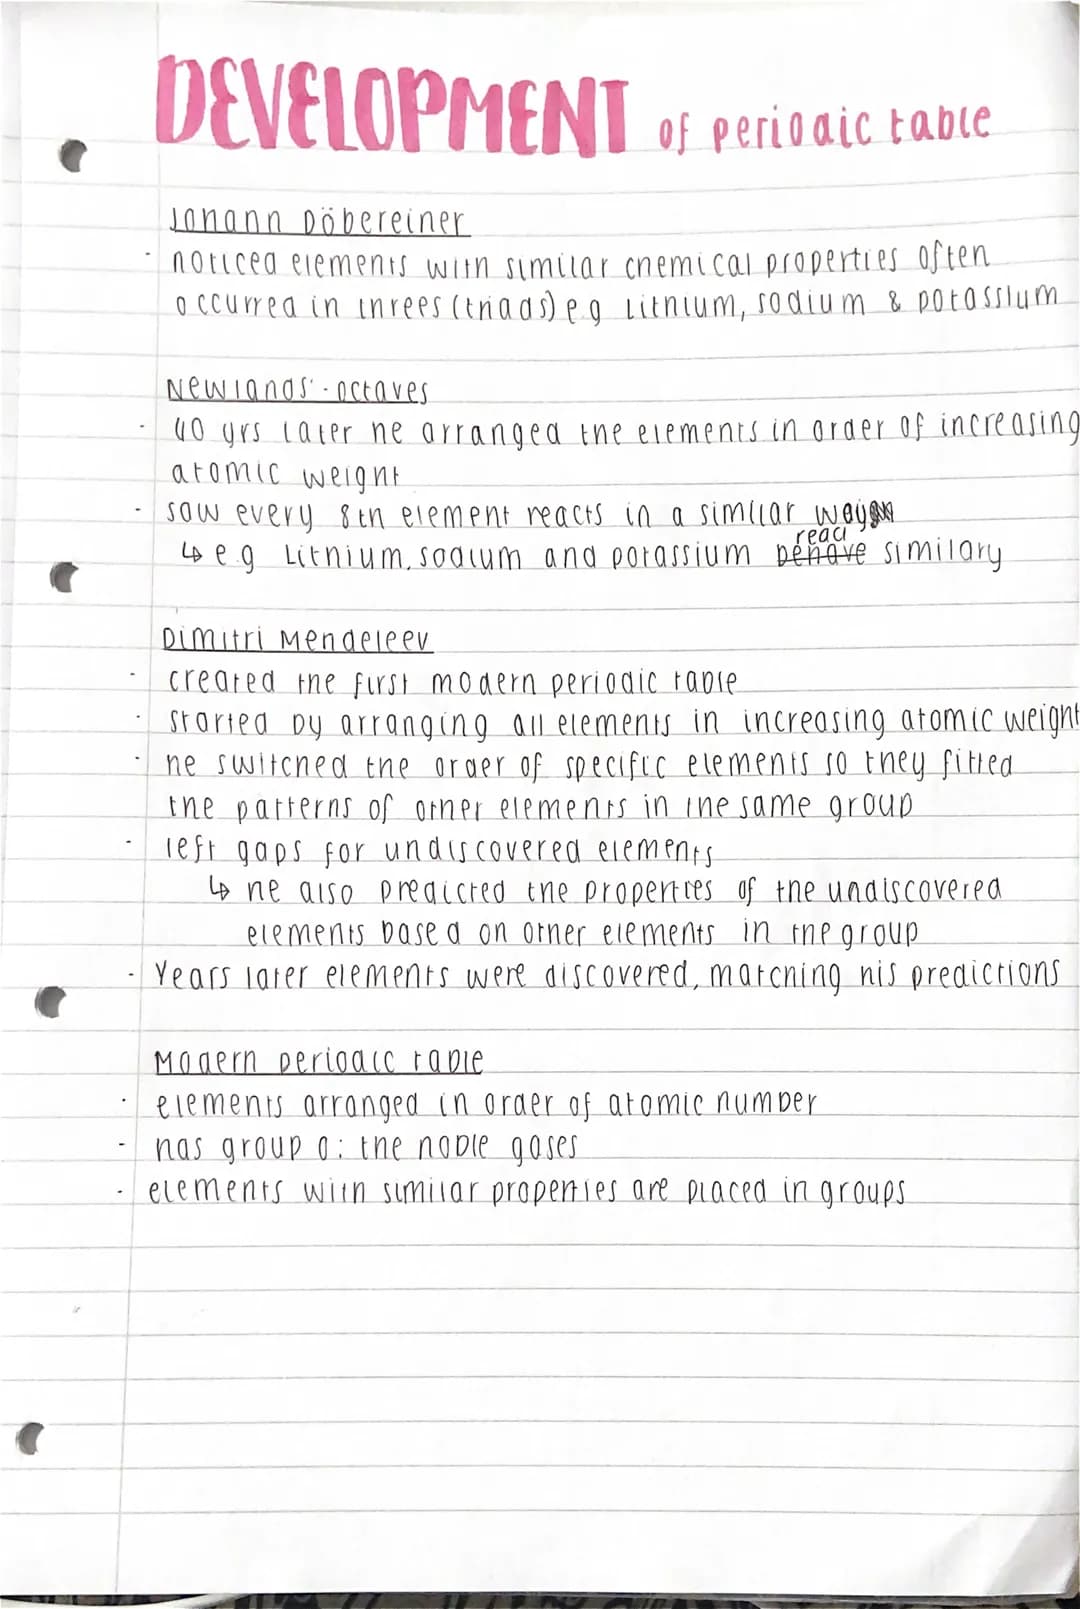 DEVELOPMENT of periodic table
Johann Döbereiner
· noticed elements with similar chemical properties often
occurred in threes (triads) e.g lithium, sodium & potassium
Newlands' - octaves
· 40 yrs later he arranged the elements in order of increasing
atomic weight
· saw every 8th element reacts in a similar way
react
↳ e.g Lithium, sodium and potassium behave similary
Dimitri Mendeleev
· created the first modern periodic table
· started by arranging all elements in increasing atomic weight
· he switched the order of specific elements so they fitted
the patterns of other elements in the same group
· left gaps for undiscovered elements
↳ he also predicted the properties of the undiscovered
elements based on other elements in the group
· Years later elements were discovered, matching his predictions
Modern periodic table
· elements arranged in order of atomic number
- has group 0: the noble gases
- elements with similar properties are placed in groups